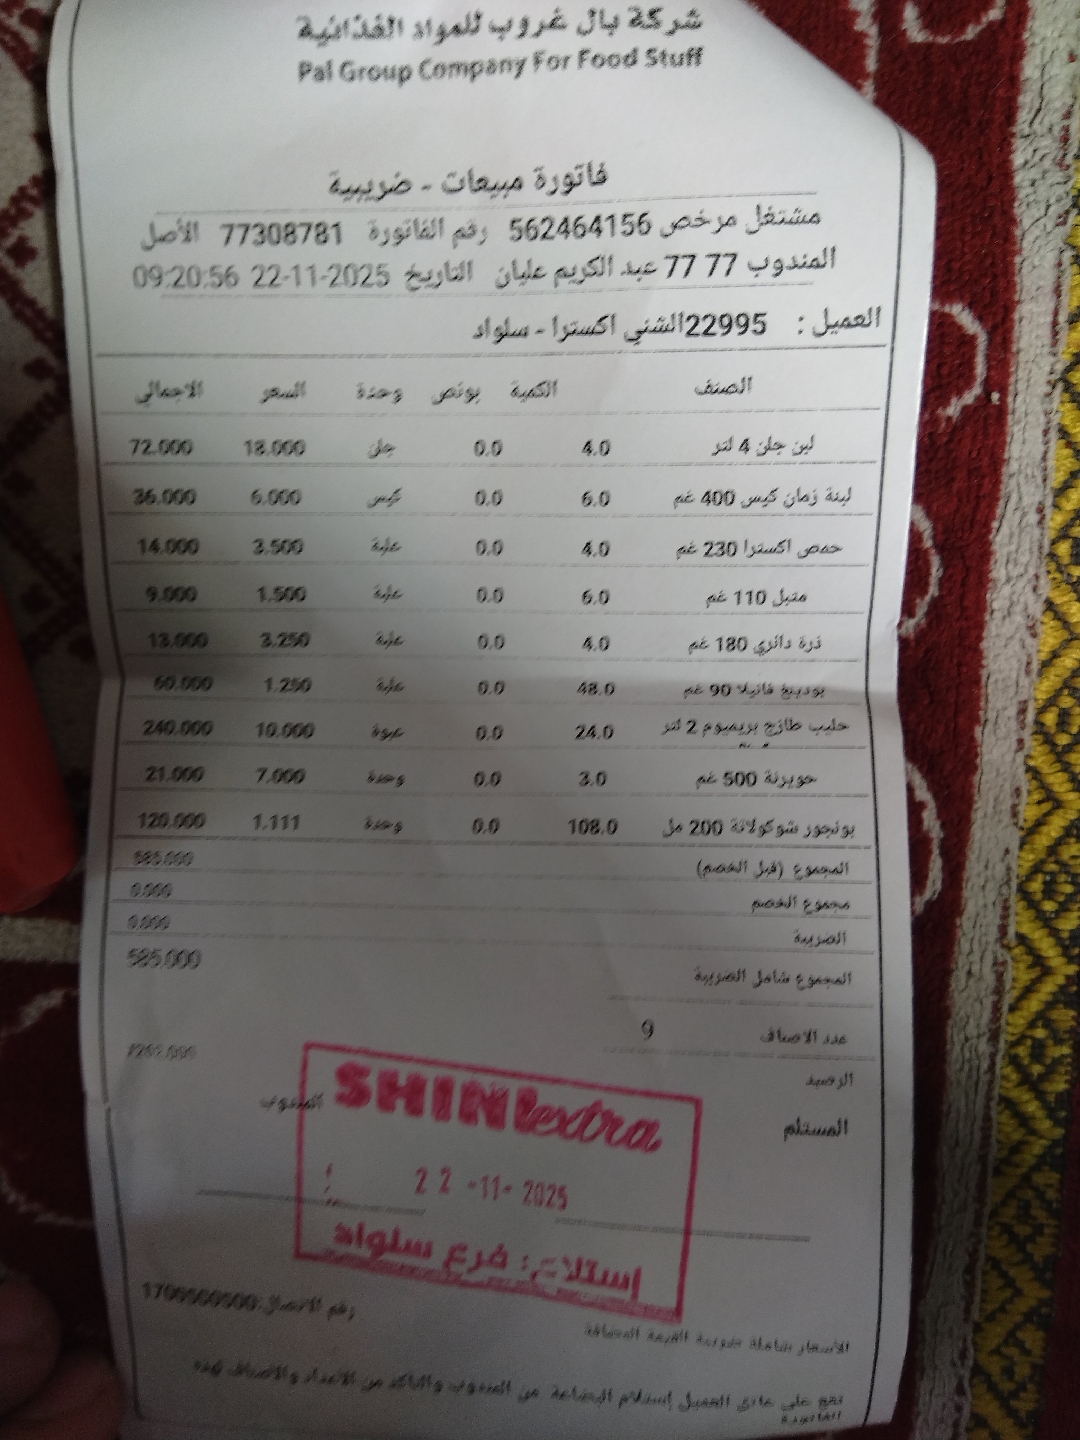 شركة بال غروب للمواد الغذائية
Pal Group Company For Food Stuff
فاتورة مبيعات - ضريبية
مشتغل مرخص 562464156 رقم الفاتورة 77308781 الأصل
المندوب 77 77 عبد الكريم عليان التاريخ 22-11-2025 09:20:56
العميل : 22995الشني اكسترا - سلواد
الصنف الكمية بونص وحدة السعر الاجمالي
لبن جلن 4 لتر 4.0 0.0 جلن 18.000 72.000
لبنة زمان كيس 400 غم 6.0 0.0 كيس 6.000 36.000
حمص اكسترا 230 غم 4.0 0.0 علبة 3.500 14.000
متبل 110 غم 6.0 0.0 علبة 1.500 9.000
ذرة دائري 180 غم 4.0 0.0 علبة 3.250 13.000
بودينغ فانيلا 90 غم 48.0 0.0 علبة 1.250 60.000
حليب طازج بريميوم 2 لتر 24.0 0.0 عبوة 10.000 240.000
جويرنة 500 غم 3.0 0.0 وحدة 7.000 21.000
بونجور شوكولاتة 200 مل 108.0 0.0 وحدة 1.111 120.000
المجموع (قبل الخصم) 585.000
مجموع الخصم 0.000
الضريبة 0.000
المجموع شامل الضريبة 585.000
عدد الاصناف 9
الرصيد
المستلم المندوب
SHINIextra
22 -11- 2025
إستلاع: فرع سلواد
رقم الاتصال:1700500500
الأسعار شاملة ضريبة القيمة المضافة
تقع على عاتق العميل إستلام البضاعة من المندوب والتأكد من الأعداد والأصناف لهذه
الفاتورة